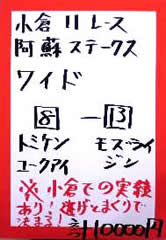 小倉11レース
阿蘇ステークス
ワイド
8 — 13
ドミケン モズベイ
ユークアイ ジン
※小倉での実績
あり!逃げとまくりで
決まる!
計10000円